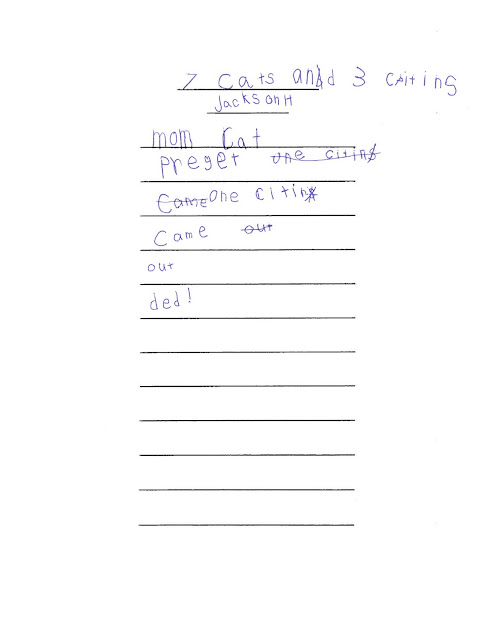 7 Cats and 3 CAiting
Jackson H
mom Cat
preget one citins
Came One citin
Came out
out
ded!